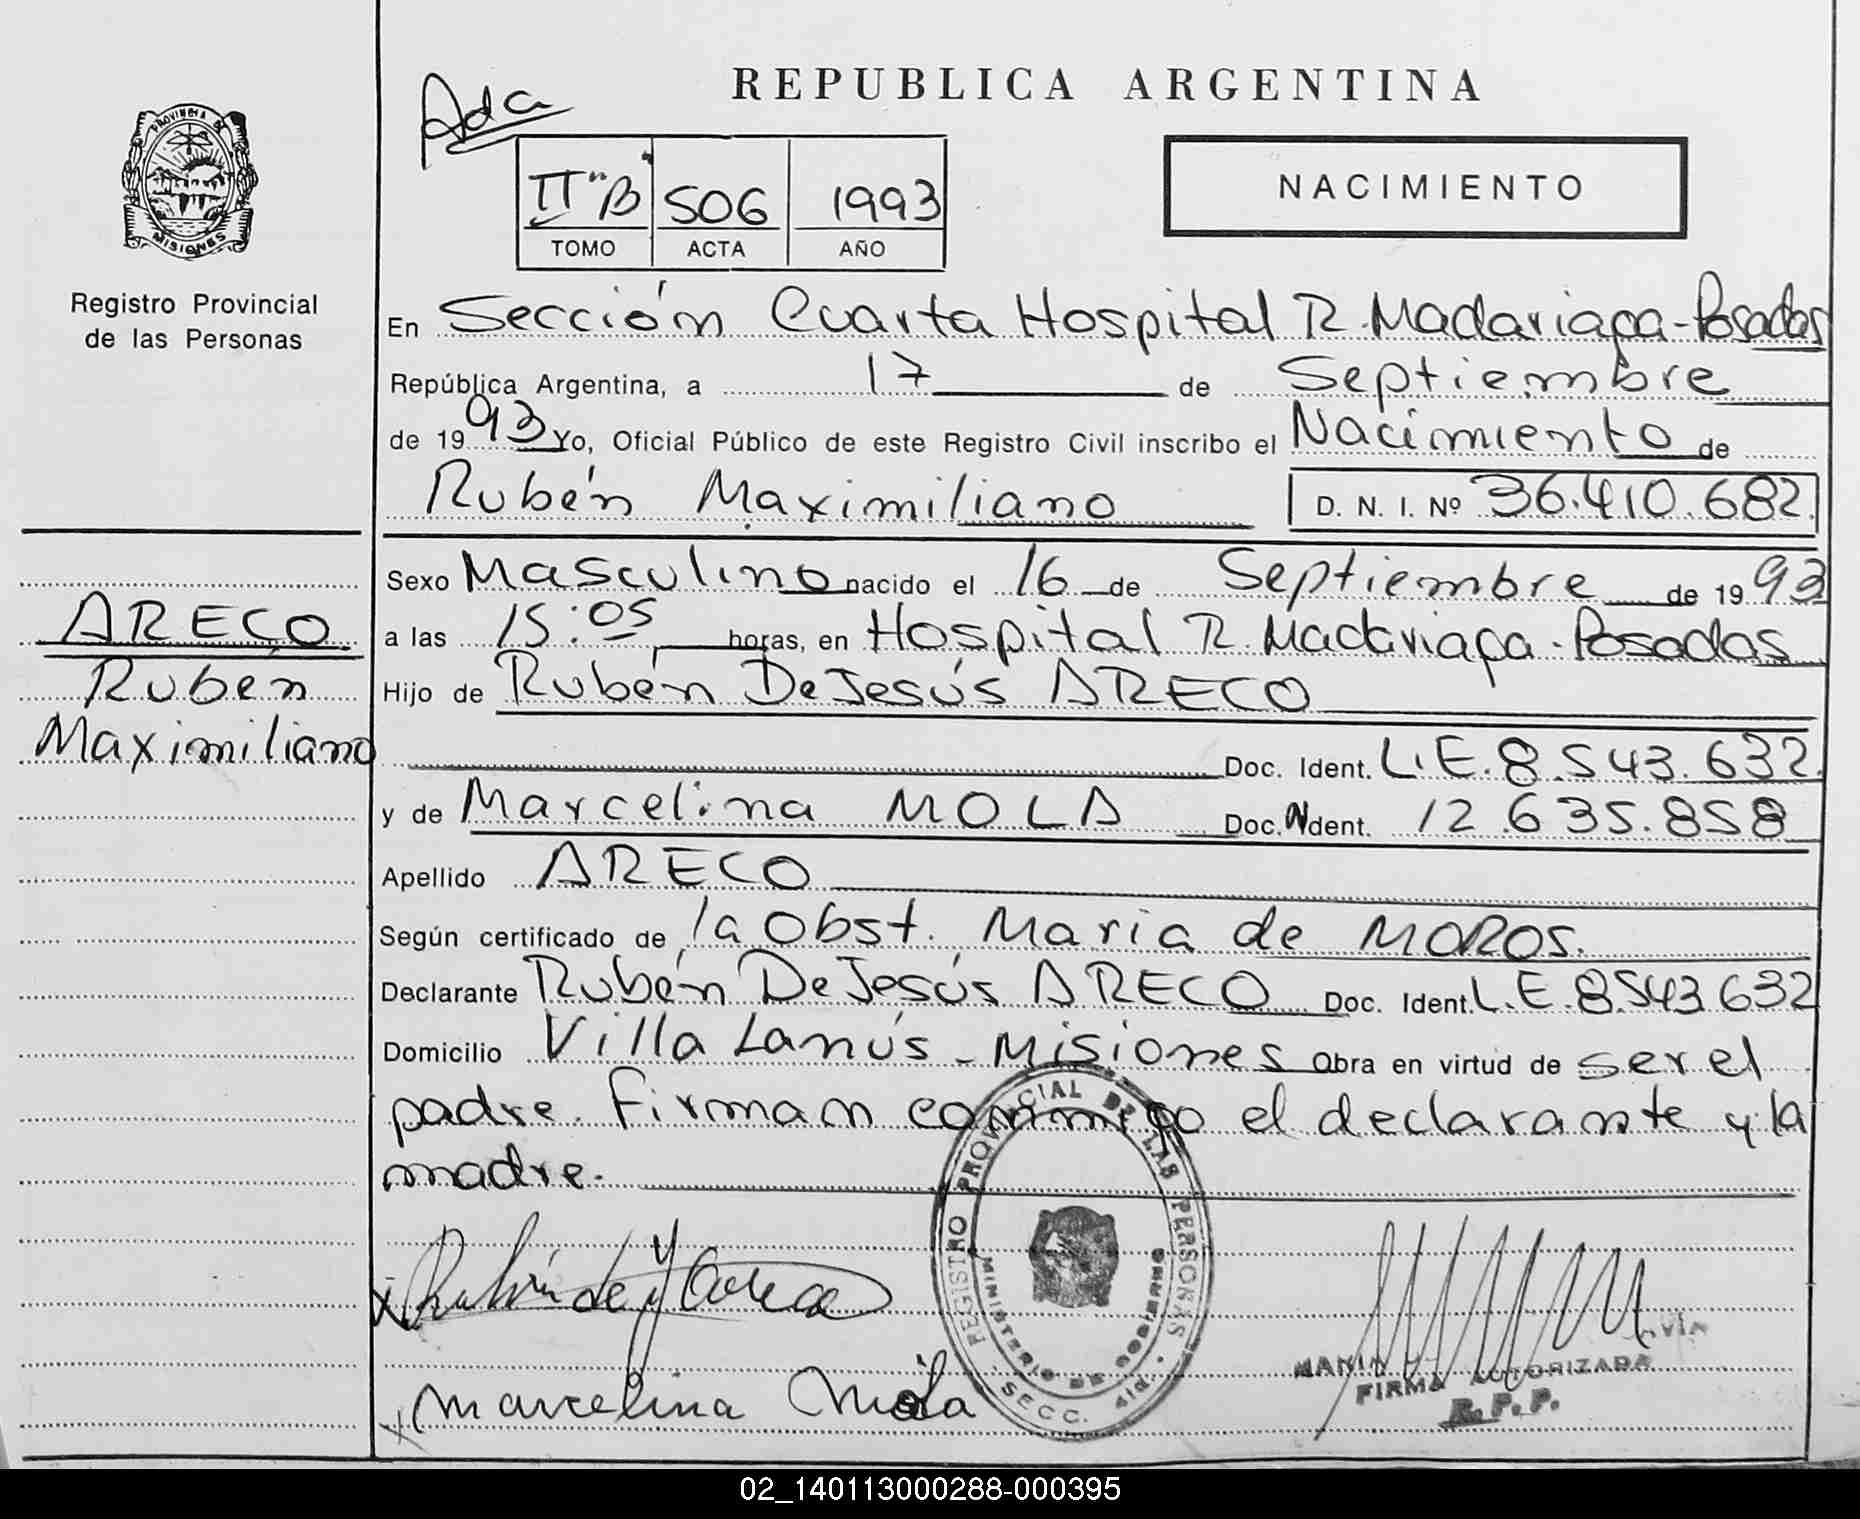 Ada
REPUBLICA ARGENTINA
PROVINCIA DE
MISIONES
II "B 506 1993
TOMO ACTA AÑO
NACIMIENTO
Registro Provincial
de las Personas
En Sección Cuarta Hospital R. Madariaga - Posadas
República Argentina, a 17 de Septiembre
de 1993 Yo, Oficial Público de este Registro Civil inscribo el Nacimiento de
Rubén Maximiliano D. N. I. Nº 36.410.682.
Sexo Masculino nacido el 16 de Septiembre de 1993
a las 15:05 horas, en Hospital R. Madariaga - Posadas
Hijo de Rubén De Jesús ARECO
Doc. Ident. L.E. 8.543.632.
y de Marcelina MOLA Doc. Ident. 12.635.858
Apellido ARECO
Según certificado de la Obst. Maria de MOROS.
Declarante Rubén De Jesús ARECO Doc. Ident. L.E. 8.543.632
Domicilio Villa Lanús - Misiones Obra en virtud de ser el
padre. Firman conmigo el declarante y la
madre.
ARECO
Rubén
Maximiliano
REGISTRO PROVINCIAL DE LAS PERSONAS
MINISTERIO DE GOBIERNO
SECC. 4ta.
Marcelina Mola
FIRMA AUTORIZADA
R. P. P.
02_140113000288-000395